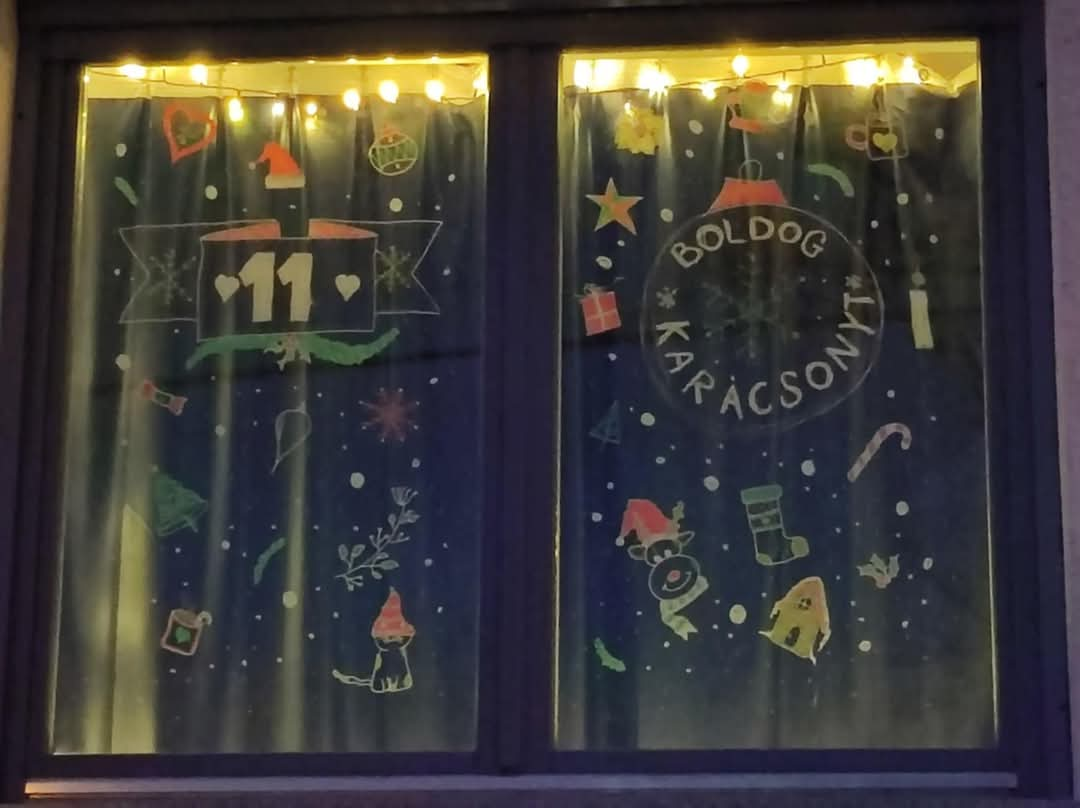 11
BOLDOG
KARÁCSONYT